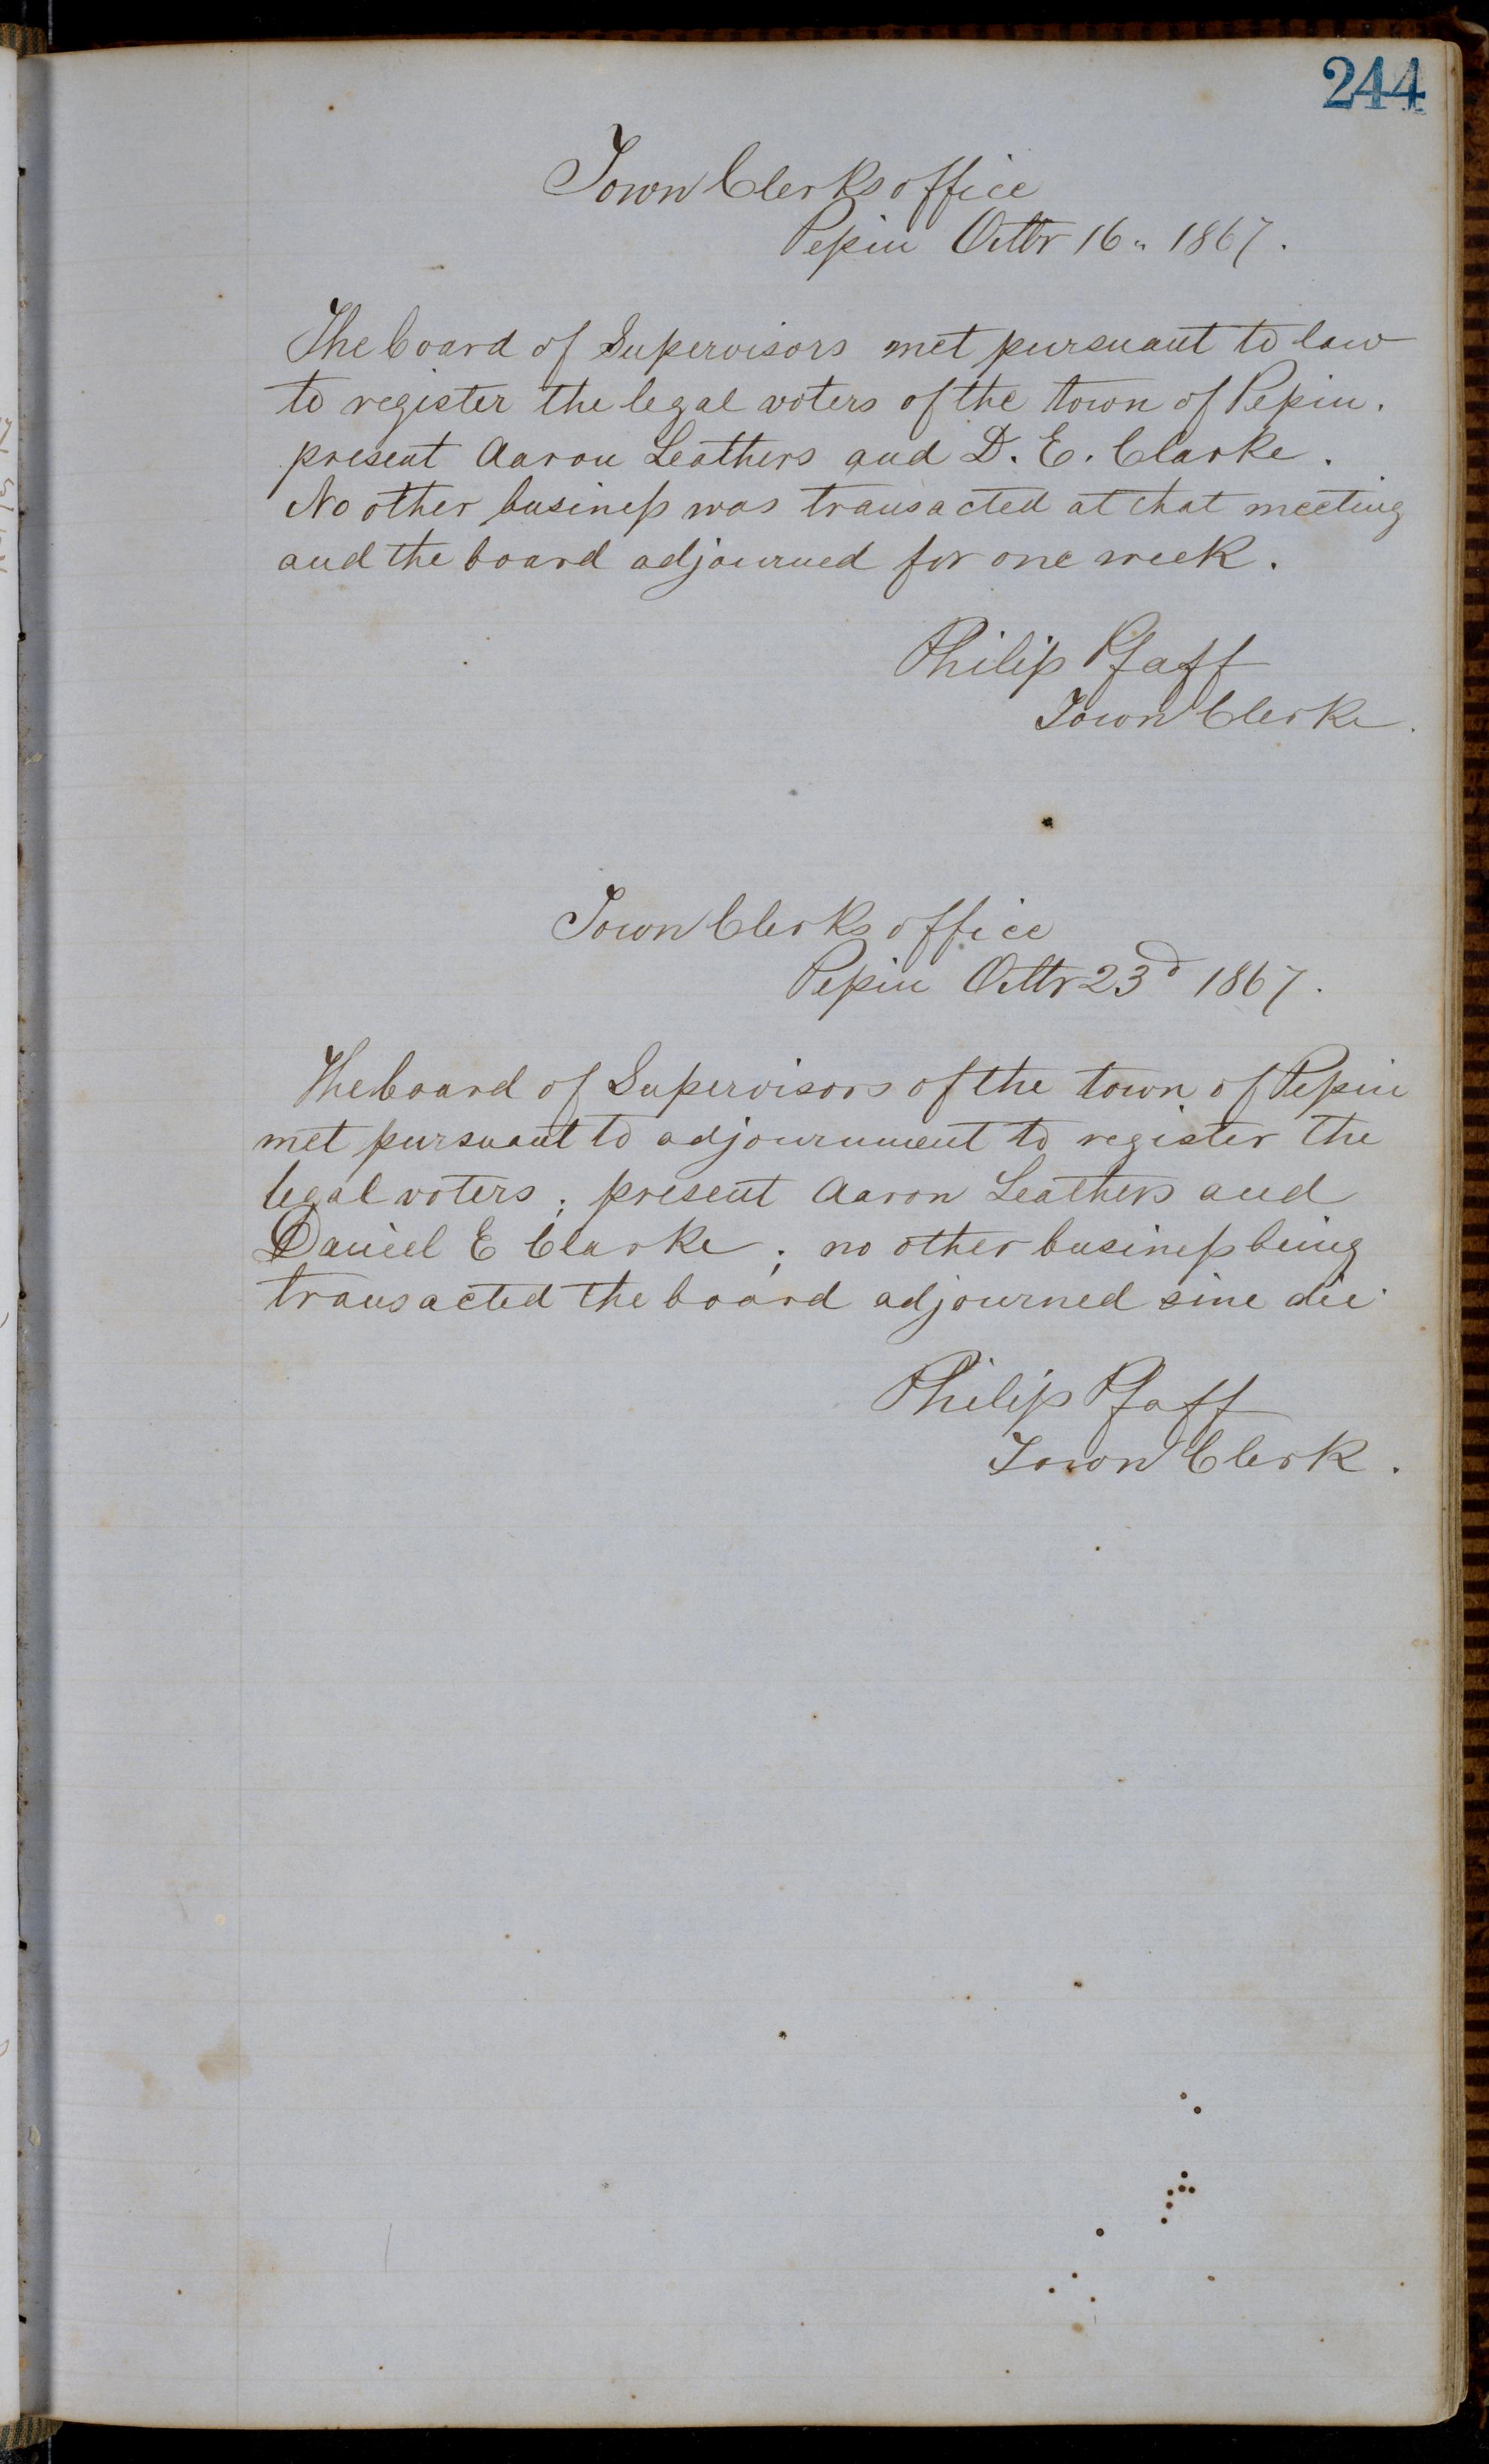 244
Town Clerks office
Pepin Octbr 16" 1867.
The board of Supervisors met pursuant to law
to register the legal voters of the town of Pepin.
present Aaron Leathers and D. E. Clarke.
No other business was transacted at that meeting
and the board adjourned for one week.
Philip Pfaff
Town Clerke.
Town Clerks office
Pepin Octbr 23d 1867.
The board of Supervisors of the town of Pepin
met pursuant to adjournment to register the
legal voters; present Aaron Leathers and
Daniel E Clarke; no other business being
transacted the board adjourned sine die.
Philip Pfaff
Town Clerk.